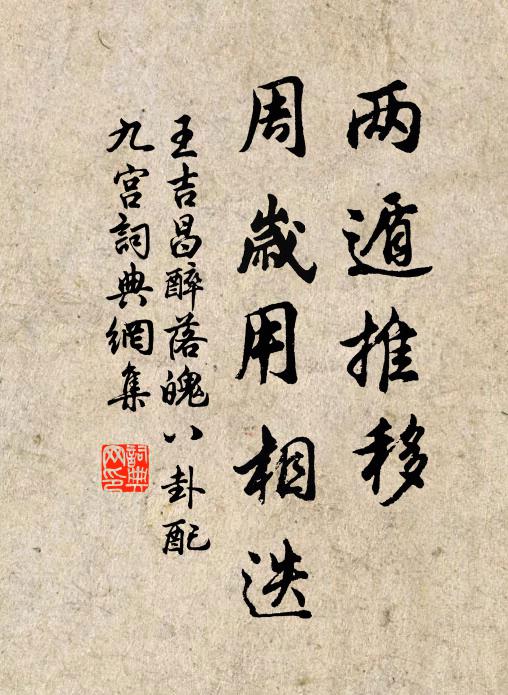 两遁推移
周歲用相迭
王吉昌醉落魄八卦配
九宫詞典網集
詞典网印